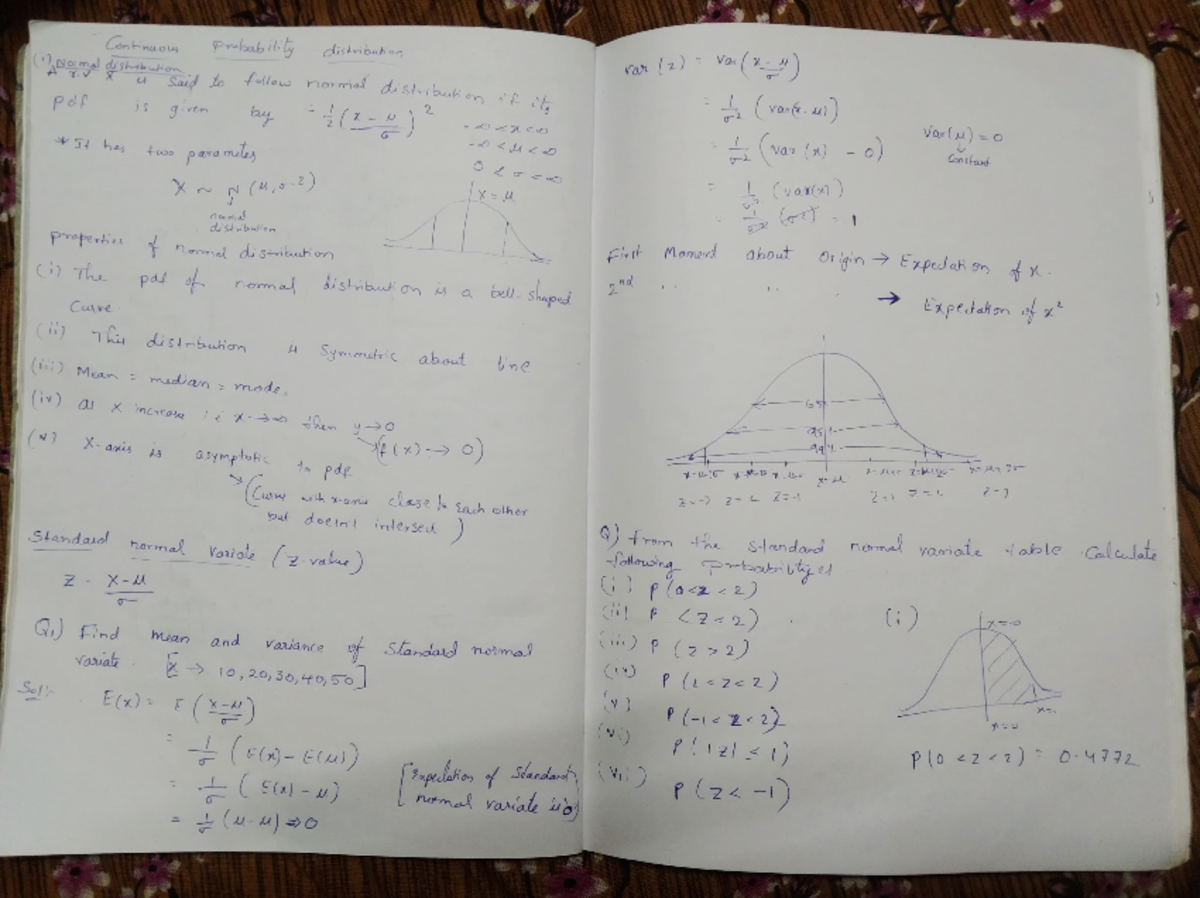 Continuous Probability distribution
(i) Normal distribution
A r.v X is said to follow normal distribution if its
pdf is given by = -1/2 (x-μ/σ)²
-∞ < x < ∞
-∞ < μ < ∞
0 < σ < ∞
* It has two parametes
X ~ N (μ, σ²)
normal
distribution
X = μ
properties of normal distribution
(i) The pdf of normal distribution is a bell-shaped
Curve.
(ii) This distribution is Symmetric about line
(iii) Mean = median = mode.
(iv) as X increase i.e x→∞ then y→0
(f(x) → 0)
(v) X-axis is asymptotic to pdf
(Curve with x-axis close to each other
but doesn't intersect)
Standard normal variate (Z-value)
Z = X-μ/σ
Q1) Find mean and variance of Standard normal
variate. [X → 10,20,30,40,50]
Sol:- E(x) = E (X-μ/σ)
= 1/σ (E(x) - E(μ))
= 1/σ (E(x) - μ)
= 1/σ (μ-μ) ⇒ 0
[Expectation of Standard
normal variate is 0]
var (z) = var (x-μ/σ)
= 1/σ² (var(x-μ))
= 1/σ² (var (x) - 0)
var(μ) = 0
Constant
= 1/σ² (var(x))
= 1/σ² (σ²) = 1
First Moment about Origin → Expectation of x.
2nd .. .. → Expectation of x²
95%
99%
x=μ
Z=-1
Z=1
Q) From the Standard normal variate table Calculate
following probabilityes
(i) P(0<z<2)
(ii) P (Z<2)
(iii) P (Z>2)
(iv) P(1<Z<2)
(v) P(-1<z<2)
(vi) P(|Z| ≤ 1)
(vii) P(Z< -1)
(i)
P(0<Z<2) = 0.4772